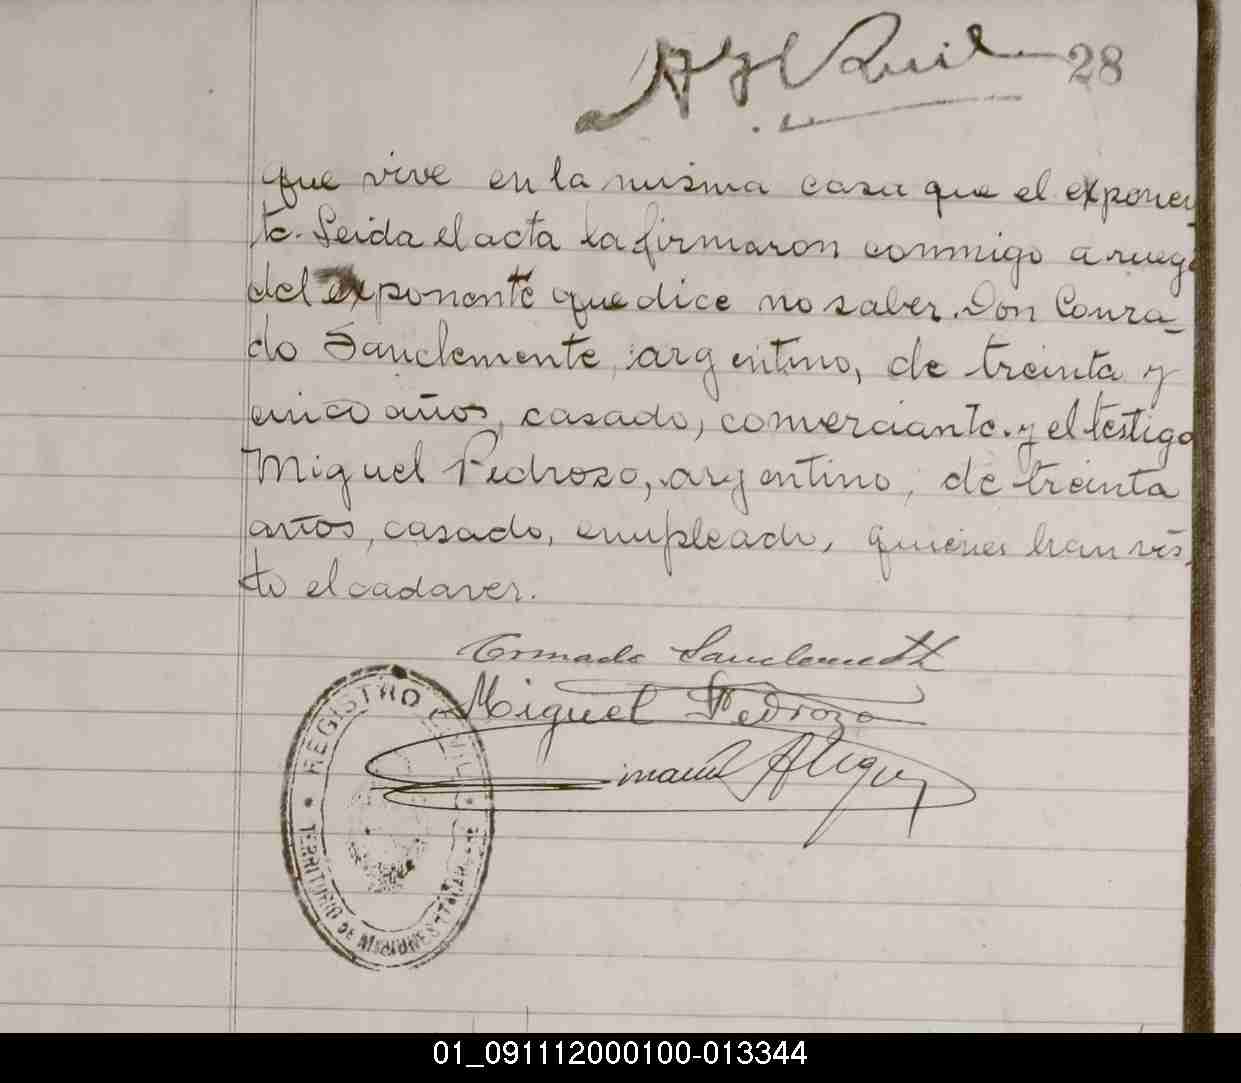 28
que vive en la misma casa que el exponen
te. Leida el acta la firmaron conmigo a ruego
del exponente que dice no saber. Don Conra_
do Sanclemente, argentino, de treinta y
cinco años, casado, comerciante. y el testigo
Miguel Pedrozo, argentino, de treinta
años, casado, empleado, quienes han vis
to el cadaver.
Sanclemente
Miguel Pedrozo
REGISTRO CIVIL
TERRITORIO DE MISIONES
01_091112000100-013344